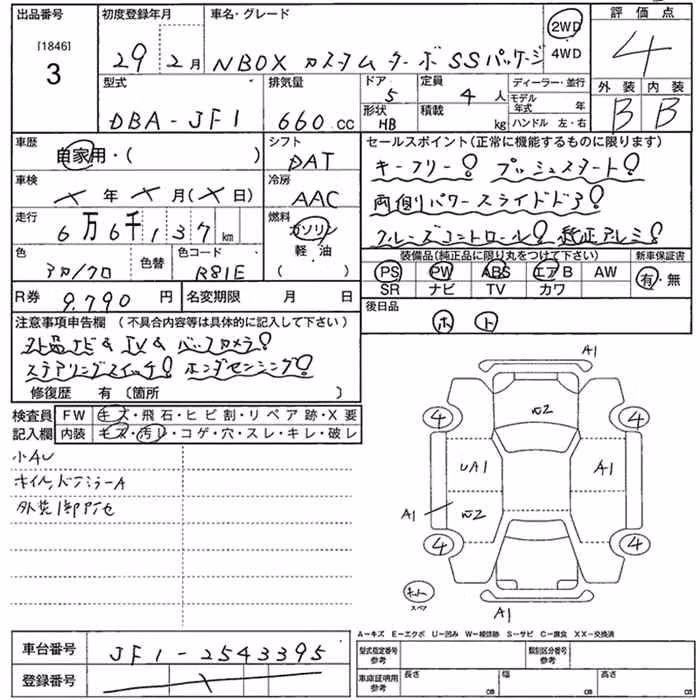 出品番号 初度登録年月 車名・グレード 評価点
[1846]
3
29 年 2月 NBOX カスタム ターボ SSパッケージ 2WD 4WD 4
型式 排気量 ドア 5 定員 4人 ディーラー・並行 外装 内装
DBA-JF1 660cc 形状 HB 積載 kg モデル年式 年 ハンドル 左・右 B B
車歴 自家用・( ) シフト DAT
セールスポイント(正常に機能するものに限ります)
キーフリー! プッシュスタート!
車検 × 年 × 月(× 日) 冷房 AAC
両側パワースライドドア!
走行 6万6千137km 燃料 ガソリン 軽油
クルーズコントロール! 純正アルミ!
色 アカ/クロ 色替 色コード R81E
装備品(純正品に限り丸をつけて下さい) 新車保証書
PS PW ABS エアB AW 有・無
SR ナビ TV カワ
R券 9,790円 名変期限 月 日
後日品 ホ ト
注意事項申告欄 (不具合内容等は具体的に記入して下さい)
社外品ナビ&TV&バックカメラ!
ステアリングスイッチ! ホンダセンシング!
修復歴 有(箇所 )
検査員記入欄 FW キズ・飛石・ヒビ割・リペア跡・X要
内装 キズ・汚れ・コゲ・穴・スレ・キレ・破レ
小AU
ホイル,ドアミラーA
A1
4 W2 4
UA1 A1
A1 W2
4 4
スペア
A1
A−キズ E−エクボ U−凹み W−補修跡 S−サビ C−腐食 XX−交換済
車台番号 JF1-2543395
登録番号
型式指定番号 参考 類別区分番号 参考
車庫証明用 参考 長さ cm 幅 cm 高さ cm